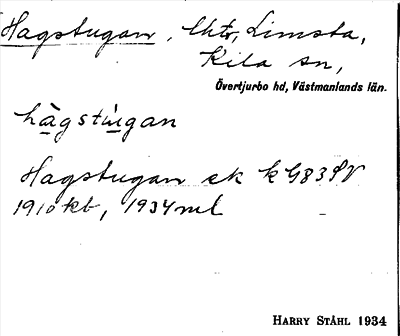 Hagstugan, lht, Limsta,
Kila sn,
Övertjurbo hd, Västmanlands län.
hàgstùgan
Hagstugan ek k G83 SV
1910 kb, 1934 ml
HARRY STÅHL 1934